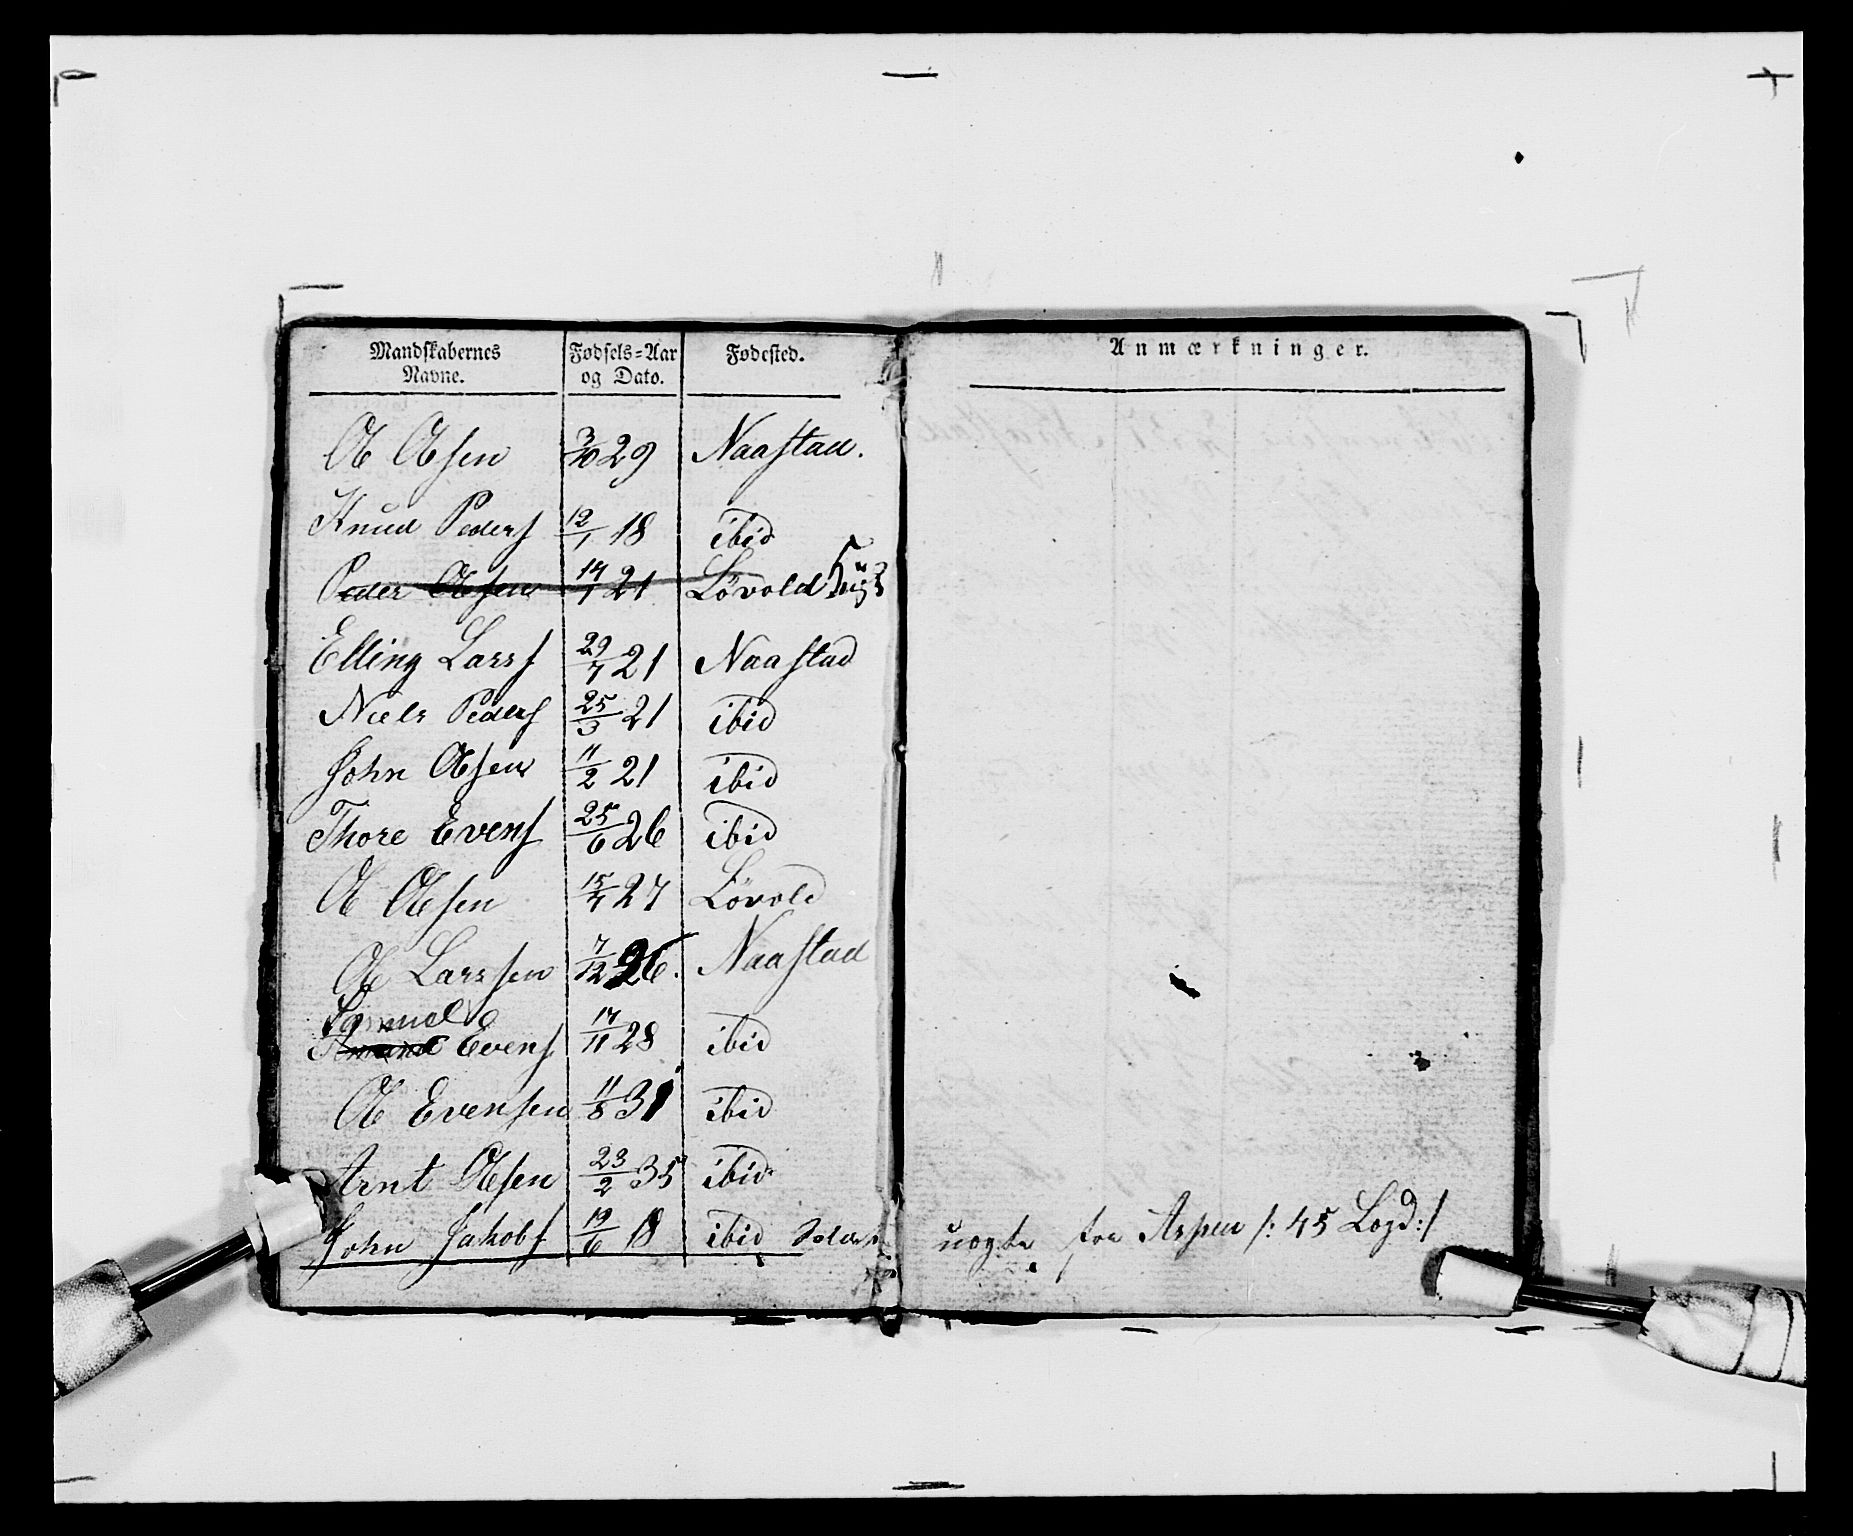 Mandskabernes Navne. Fødsels=Aar og Dato. Fødested. Anmærkninger.
Ole Olesen 3/10 29 Naastad.
Knud Peders 12/1 18 ibid
Peder Olesen 14/1 21 Lövold
Elling Larss 29/7 21 Naastad
Niels Peders 25/3 21 ibid
John Olesen 11/2 21 ibid
Thore Evens 25/6 26 ibid
Ole Olesen 15/7 27 Lövold
Ole Larssen 7/12 26. Naastad
Samuel
Evens 17/11 28 ibid
Ole Evensen 11/8 31 ibid
Arnt Olesen 23/2 35 ibid
John Jakobs 19/6 18 ibid Aspen /: 45 Lægd :/